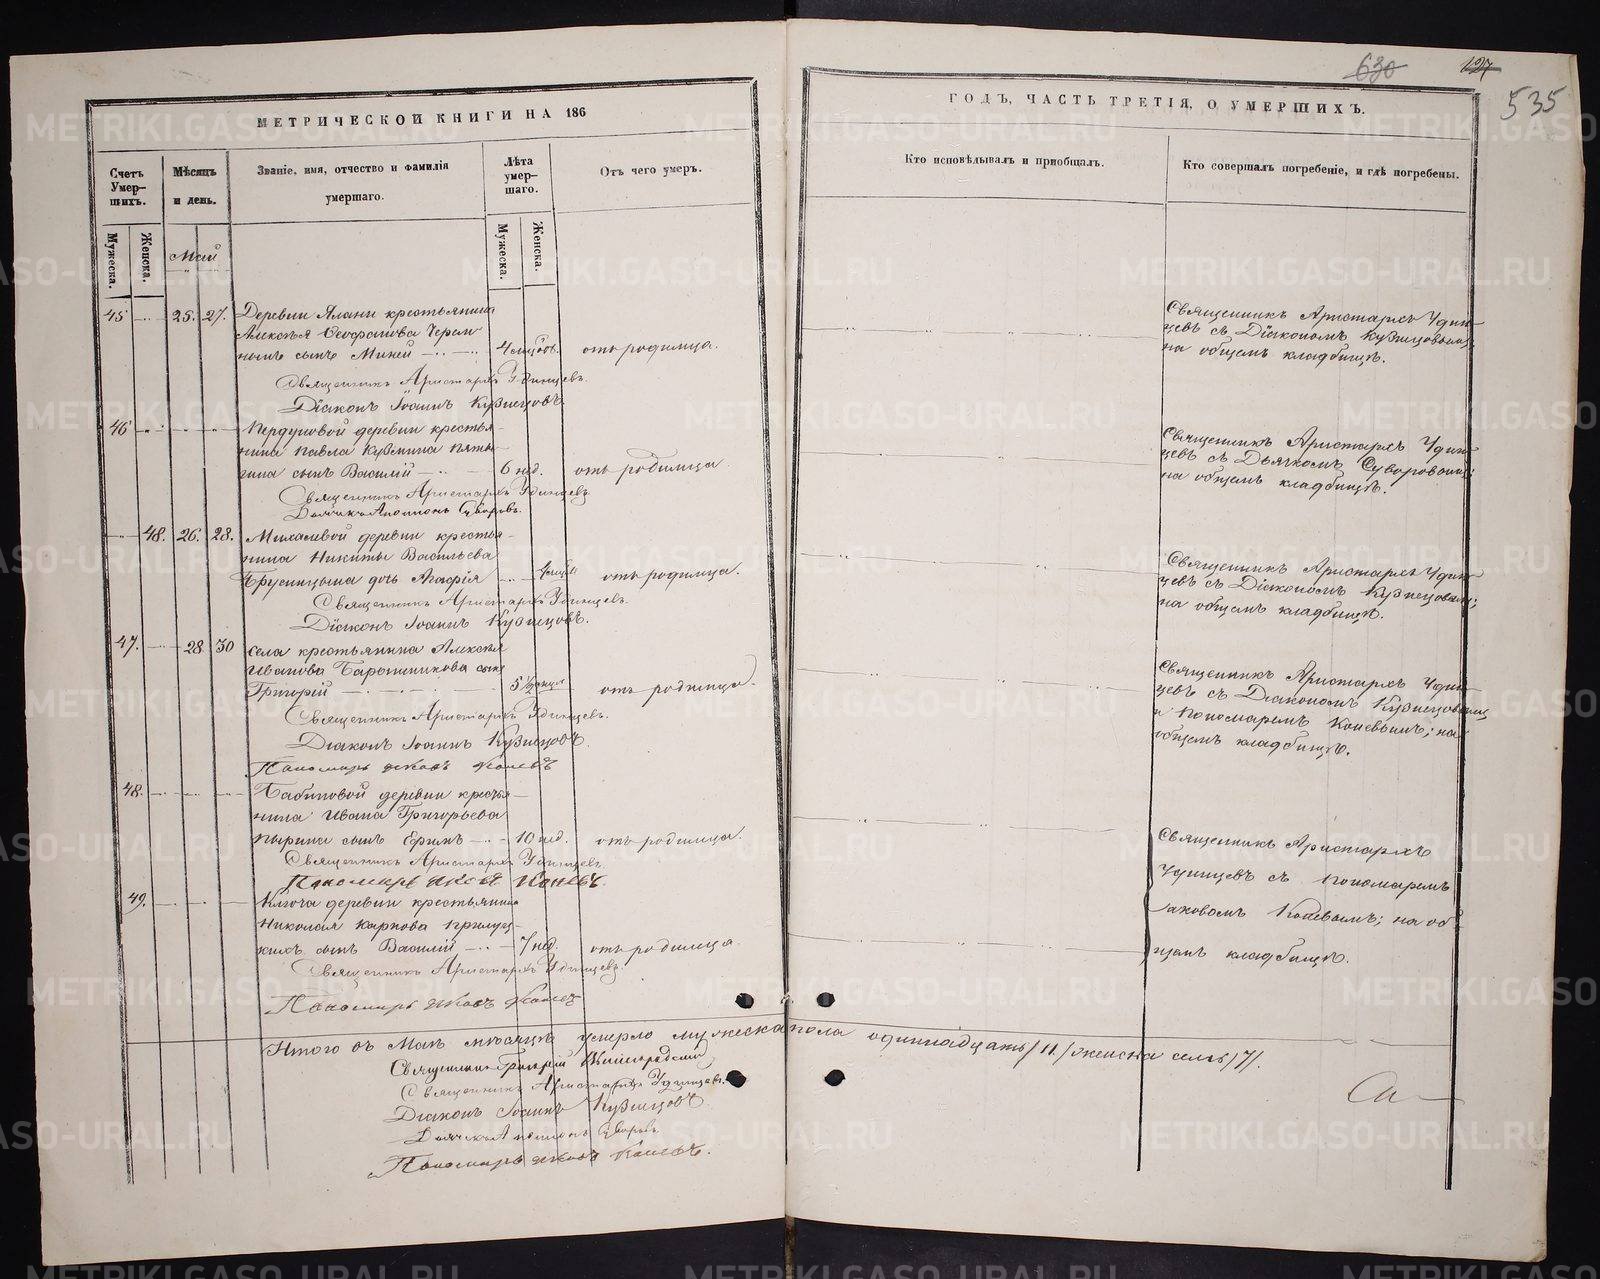 630 127
535
МЕТРИЧЕСКОЙ КНИГИ НА 186
ГОДЪ, ЧАСТЬ ТРЕТІЯ, О УМЕРШИХЪ.
Счетъ Умер-
шихъ.
Мѣсяцъ
и день.
Званіе, имя, отчество и фамилія
умершаго.
Лѣта
умер-
шаго.
Отъ чего умеръ.
Кто исповѣдывалъ и пріобщалъ.
Кто совершалъ погребеніе, и гдѣ погребены.
Мужеска.
Женска.
Май
Мужеска.
Женска.
45 25. 27. Деревни Ялани крестьянина
Алексѣя
нымъ сынъ Михей 4 отъ родимца.
Священникъ Аристархъ Удинцевъ.
Діаконъ Іоаннъ Кузнецовъ.
Священникъ Аристархъ Удин-
цевъ съ Діакономъ Кузнецовымъ;
на общемъ кладбищѣ.
46 деревни крестья-
нина Павла Кузмина
сынъ Василій 6 нед. отъ родимца
Священникъ Аристархъ Удинцевъ
Священникъ Аристархъ Удин-
цевъ съ Дьячкомъ Суворовымъ;
на общемъ кладбищѣ.
48. 26. 28. Михалевой деревни крестья-
нина Никиты Васильева
Брусницына дочь Агафія отъ родимца.
Священникъ Аристархъ Удинцевъ.
Діаконъ Іоаннъ Кузнецовъ.
Священникъ Аристархъ Удин-
цевъ съ Діакономъ Кузнецовымъ;
на общемъ кладбищѣ.
47. 28 30 Села крестьянина Алексѣя
Иванова сынъ
Григорій 5 1/2 отъ родимца.
Священникъ Аристархъ Удинцевъ.
Діаконъ Іоаннъ Кузнецовъ.
Пономарь Яковъ Коневъ
Священникъ Аристархъ Удин-
цевъ съ Діакономъ Кузнецовымъ
и Пономаремъ Коневымъ; на
общемъ кладбищѣ.
48. Бабиновой деревни крестья-
нина Ивана Григорьева
сынъ 10 нед. отъ родимца.
Священникъ Аристархъ Удинцевъ
Пономарь Яковъ Коневъ.
Священникъ Аристархъ
Удинцевъ съ Пономаремъ
Яковомъ Коневымъ; на об-
щемъ кладбищѣ.
49. Ключа деревни крестьянина
Николая Карпова
сынъ Василій 7 нед. отъ родимца
Священникъ Аристархъ Удинцевъ.
Пономарь Яковъ Коневъ
Итого въ Маѣ мѣсяцѣ умерло мужеска пола одиннадцать /11/ женска семь /7/.
Священникъ Григорій
Священникъ Аристархъ Удинцевъ.
Діаконъ Іоаннъ Кузнецовъ
Пономарь Яковъ Коневъ.
METRIKI.GASO-URAL.RU